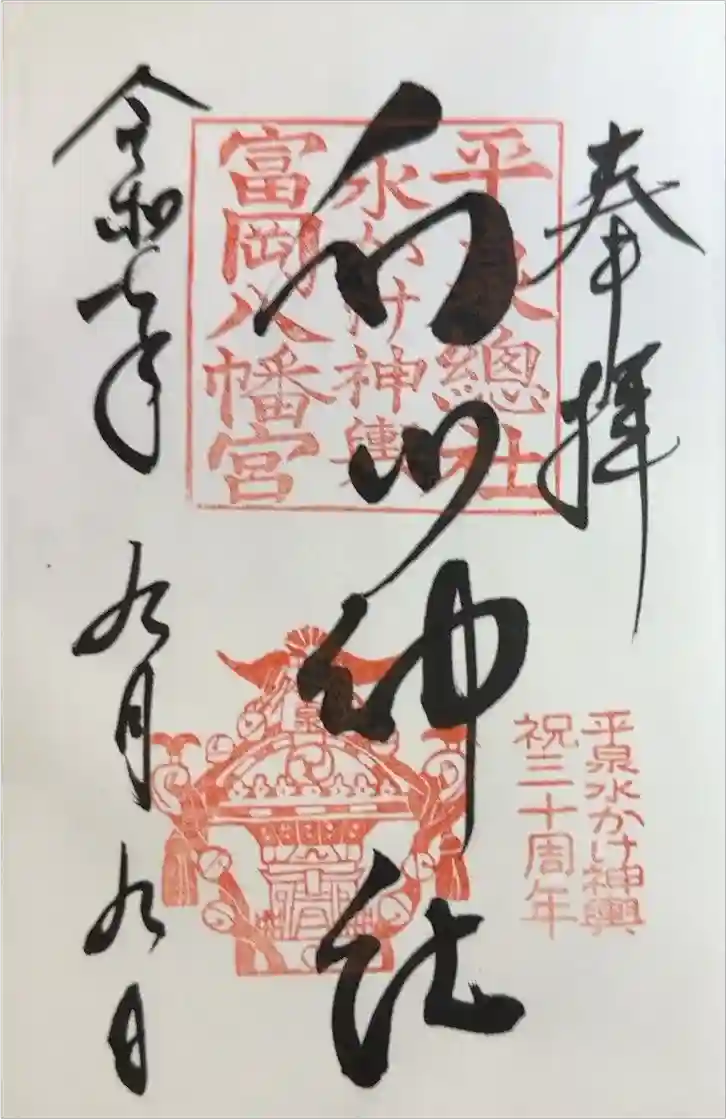 奉拝
平泉總社
水かけ神輿
富岡八幡宮
白山神社
平泉水かけ神輿
祝三十周年
令和七年九月九日